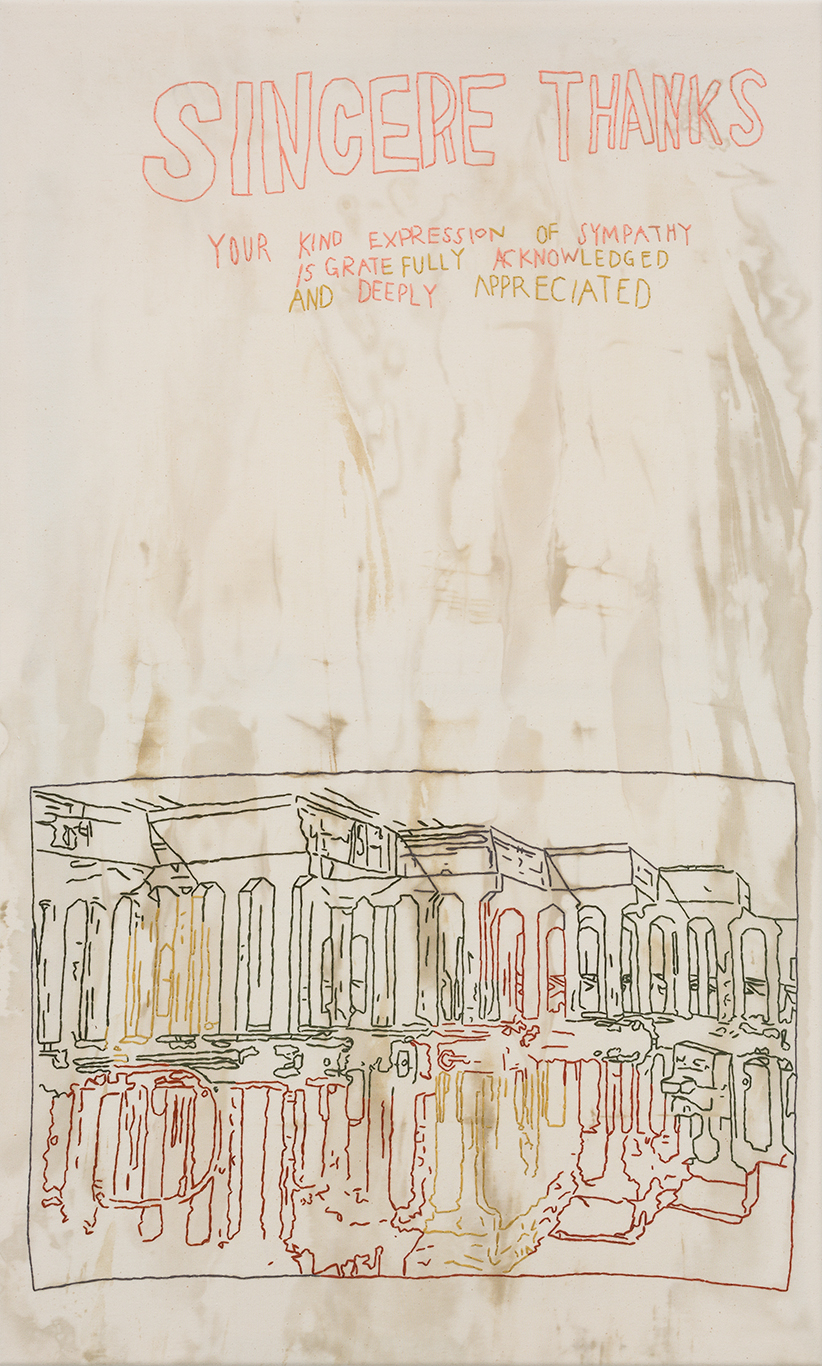 SINCERE THANKS
YOUR KIND EXPRESSION OF SYMPATHY
IS GRATEFULLY ACKNOWLEDGED
AND DEEPLY APPRECIATED